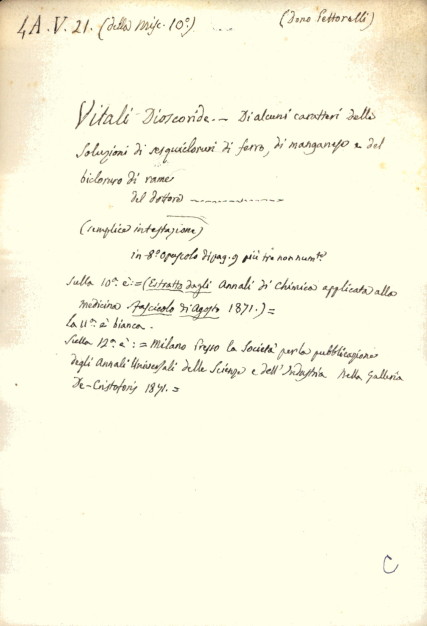 4A. V. 21. (della Misc. 10ª) (dono Pettorelli)
Vitali Dioscoride. — Di alcuni caratteri delle
soluzioni di sesquicloruri di ferro, di manganese e del
bicloruro di rame
del dottore
(semplice intestazione)
in-8° opuscolo di pag. 9 più tre non numte
Sulla 10ª è: = (Estratto dagli Annali di Chimica applicata alla
medicina fascicolo di Agosto 1871.) =
la 11ª è bianca.
Sulla 12ª è: = Milano Presso la Società per la pubblicazione
degli Annali Universali delle Scienze e dell'Industria nella Galleria
De-Cristoforis 1871. =
C